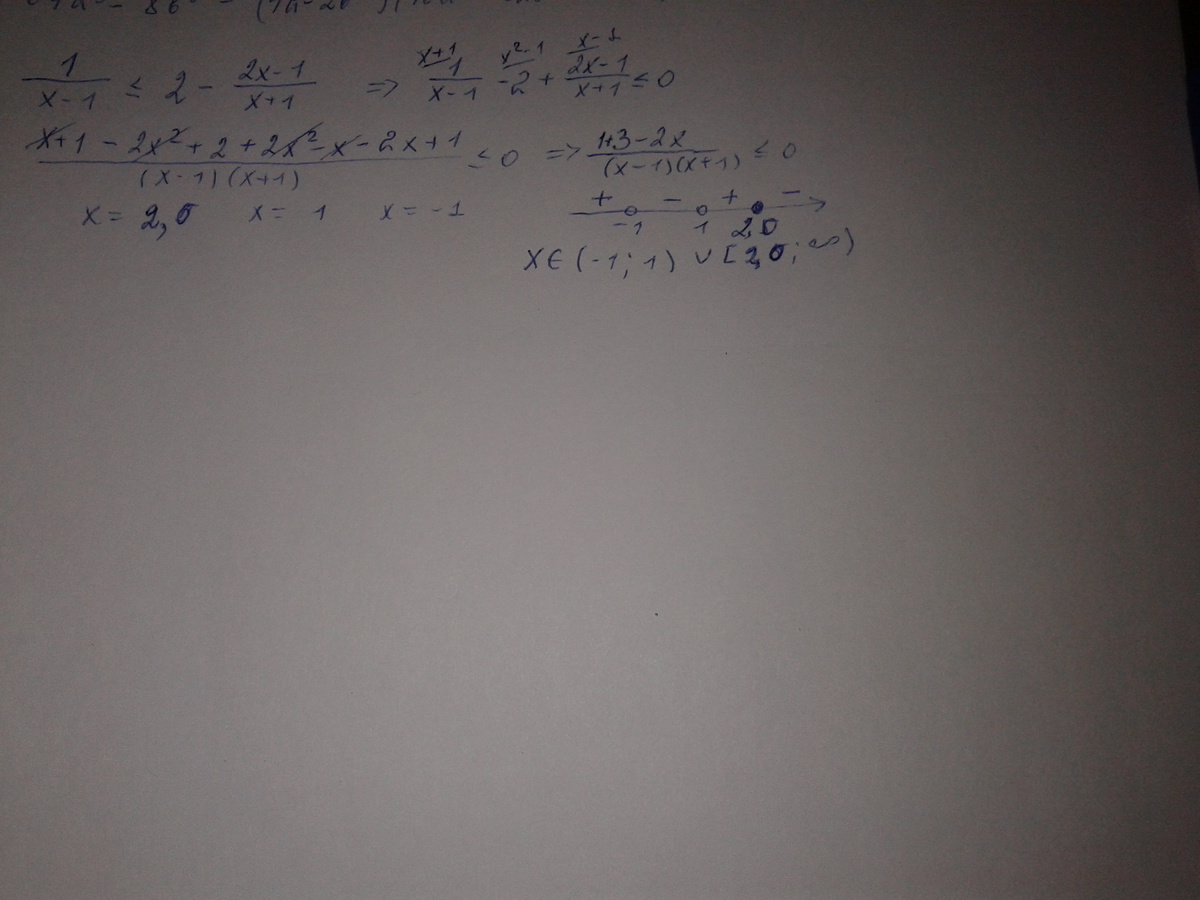 1/(x-1) ≤ 2 - (2x-1)/(x+1) => x+1/ 1/(x-1) x²-1/ -2 + x-1/ (2x-1)/(x+1) ≤ 0
(x+1 - 2x² + 2 + 2x² - x - 2x + 1)/((x-1)(x+1)) ≤ 0 => (1+3-2x)/((x-1)(x+1)) ≤ 0
+ - + -
x = 2, x = 1 x = -1
-1 1 2,
x ∈ (-1; 1) ∨ [2, ; ∞)